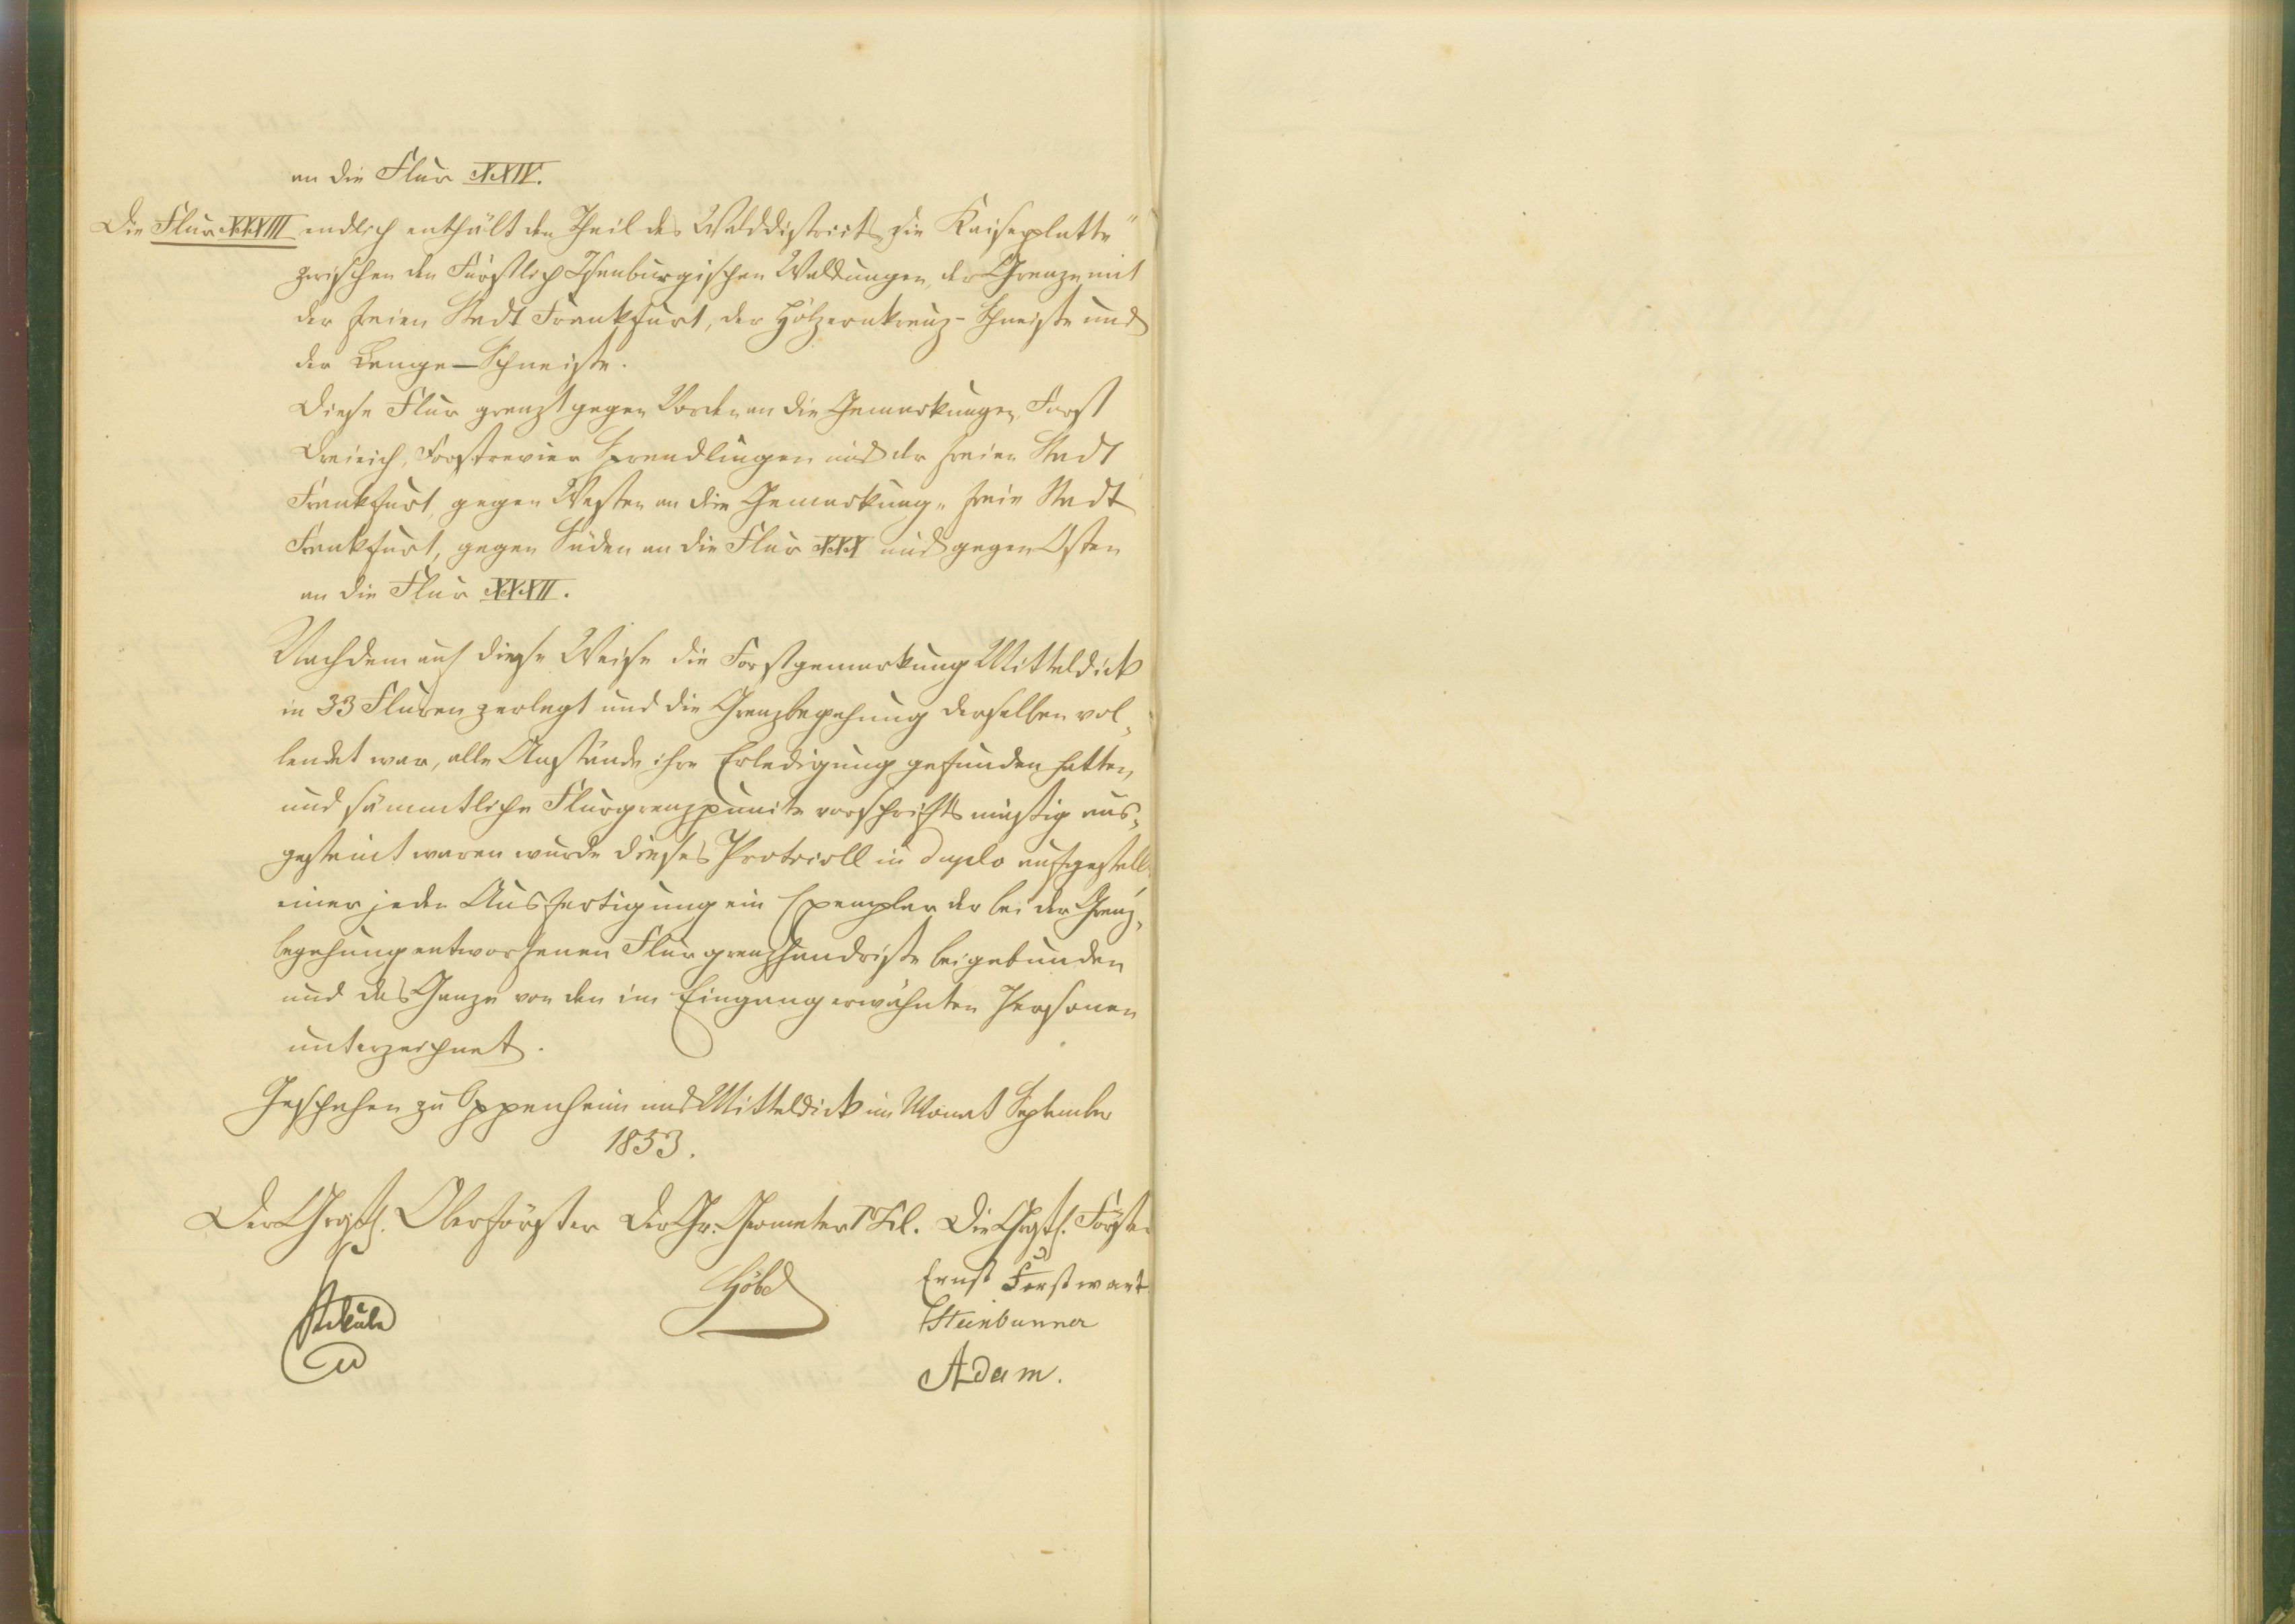 an die Flur XXIV.
Die Flur XXXIII endlich enthält den Theil des Walddistricts „die Kaiseplatte“
zwischen den Fürstlich Isenburgischen Waldungen, der Grenze mit
der freien Stadt Frankfurt, der Hölzernkreuz-Schneiße und
der Lange-Schneiße.
Diese Flur grenzt gegen Norden an die Gemarkungen, Forst
Dreieich, Forstrevier Sprendlingen und der freien Stadt
Frankfurt, gegen Westen an die Gemarkung „ freie Stadt
Frankfurt, gegen Süden an die Flur XXX und gegen Osten
an die Flur XXXII.
Nachdem auf diese Weise die Forstgemarkung Mitteldick
in 33 Fluren zerlegt und die Grenzbegehung derselben vol„
lendet war, alle Anstände ihre Erledigung gefunden hatten,
und sämmtliche Flurgrenzpunkte vorschriftsmäßig aus„
gesteint waren wurde dieses Protocoll in duplo aufgestellt
einer jeden Ausfertigung ein Exemplar der bei der Grenz„
begehung entworfenen Flurgrenzhandrisse beigebunden
und das Ganze von den im Eingang erwähnten Personen
unterzeichnet.
Geschehen zu Oppenheim und Mitteldick im Monat September
1853.
Der Grosh. Oberförster Der Gr. Geometer I Kl. Die Grosh. Förster
Höbel Ernst Forstwart
Steinbunner
Adam.